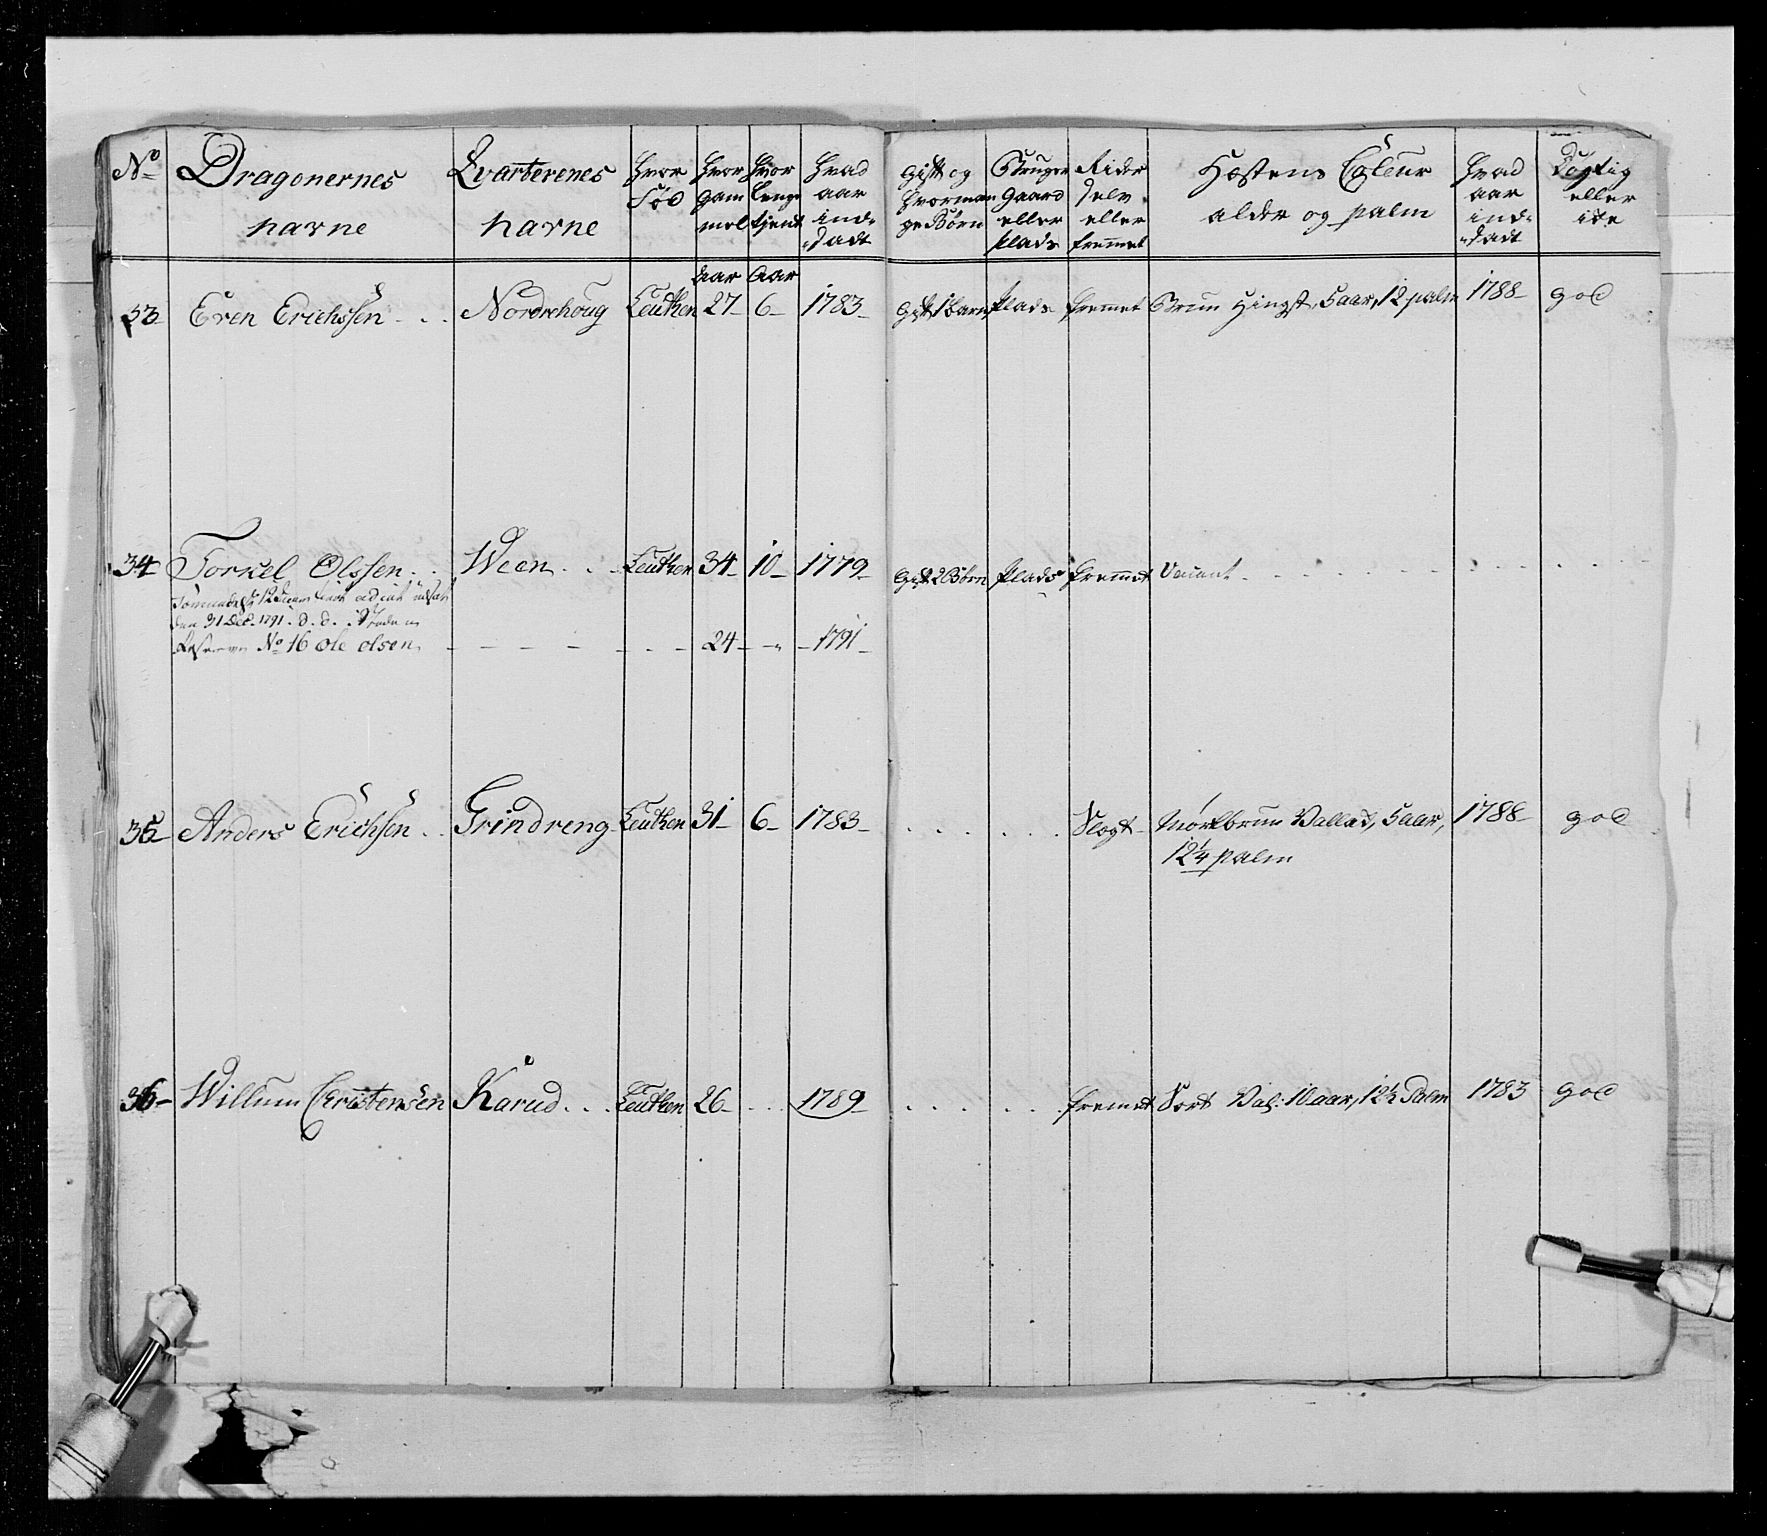 No Dragonernes Navne Qvarterenes Navne Hvor Fød Hvor Gammel Hvor Lenge tjent Hvad aar ind-sadt Gift og Hvor mange Børn Bruger Gaard eller Plads Rider selv eller fremmet Hæstens Coleur alder og palm Hvad aar ind-sadt Dygtig eller ike
Aar Aar
33 Even Erichssen Nordrehoug Leuthen 27 6 1783 Gift 1 Barn Plads fremmet Brun Hingst, 5 aar, 12 palm 1788 god
34 Torkel Olssen Ween Leuthen 34 10 1779 Gift 2 Børn Plads fremmet Vacant
12
den 31 Dec. 1791. d. d.
Reserve No 16 Ole Olsen 24 1791
35 Anders Erichsen Grindreng Leuthen 31 6 1783 Slogt Mørkbrun Vallad, 5 aar, 1788 god
12 1/4 palm
36 Willum Christensen Karud Leuthen 26 1789 fremet Sort Val: 10 aar, 12 1/2 Palm 1783 god